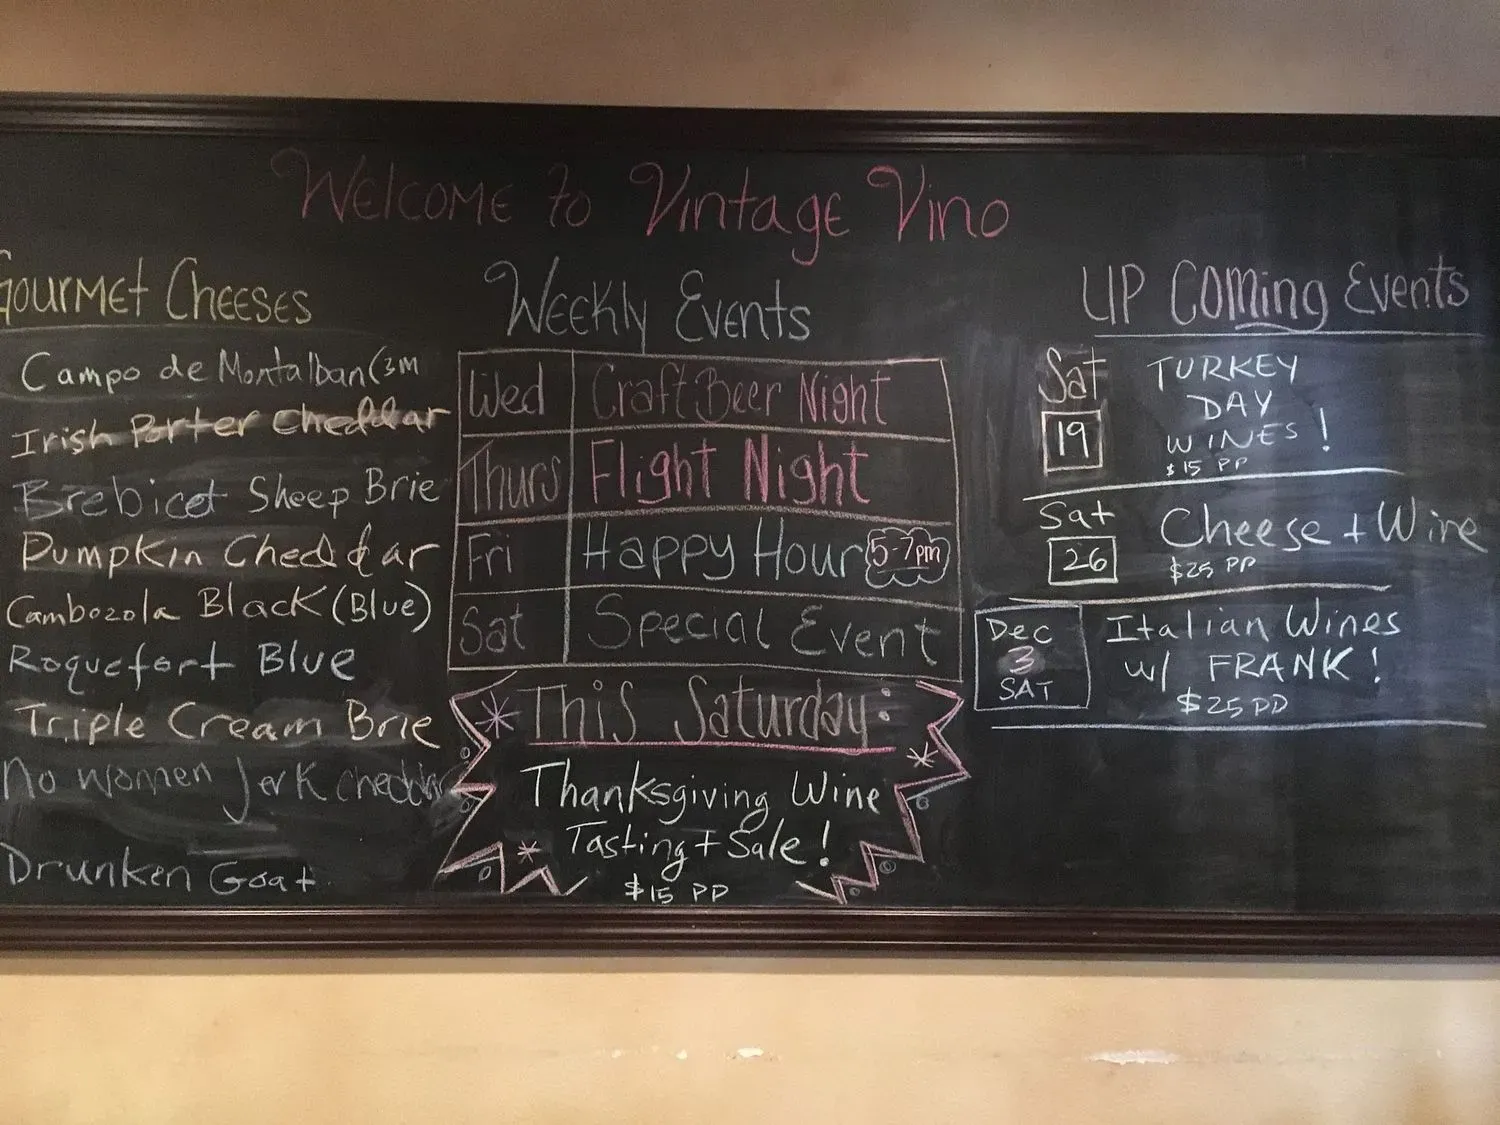 Welcome to Vintage Vino
Gourmet Cheeses
Campo de Montalban (3m
Irish Porter Cheddar
Brebicet Sheep Brie
Pumpkin Cheddar
Cambozola Black (Blue)
Roquefort Blue
Triple Cream Brie
No women Jerk cheddar
Drunken Goat
Weekly Events
Wed Craft Beer Night
Thurs Flight Night
Fri Happy Hour 5-7pm
Sat Special Event
This Saturday:
Thanksgiving Wine
Tasting + Sale!
$15 PP
UP Coming Events
Sat
19
TURKEY
DAY
WINES!
$15 PP
Sat
26
Cheese + Wine
$25 PP
Dec
3
SAT
Italian Wines
w/ FRANK!
$25 PP